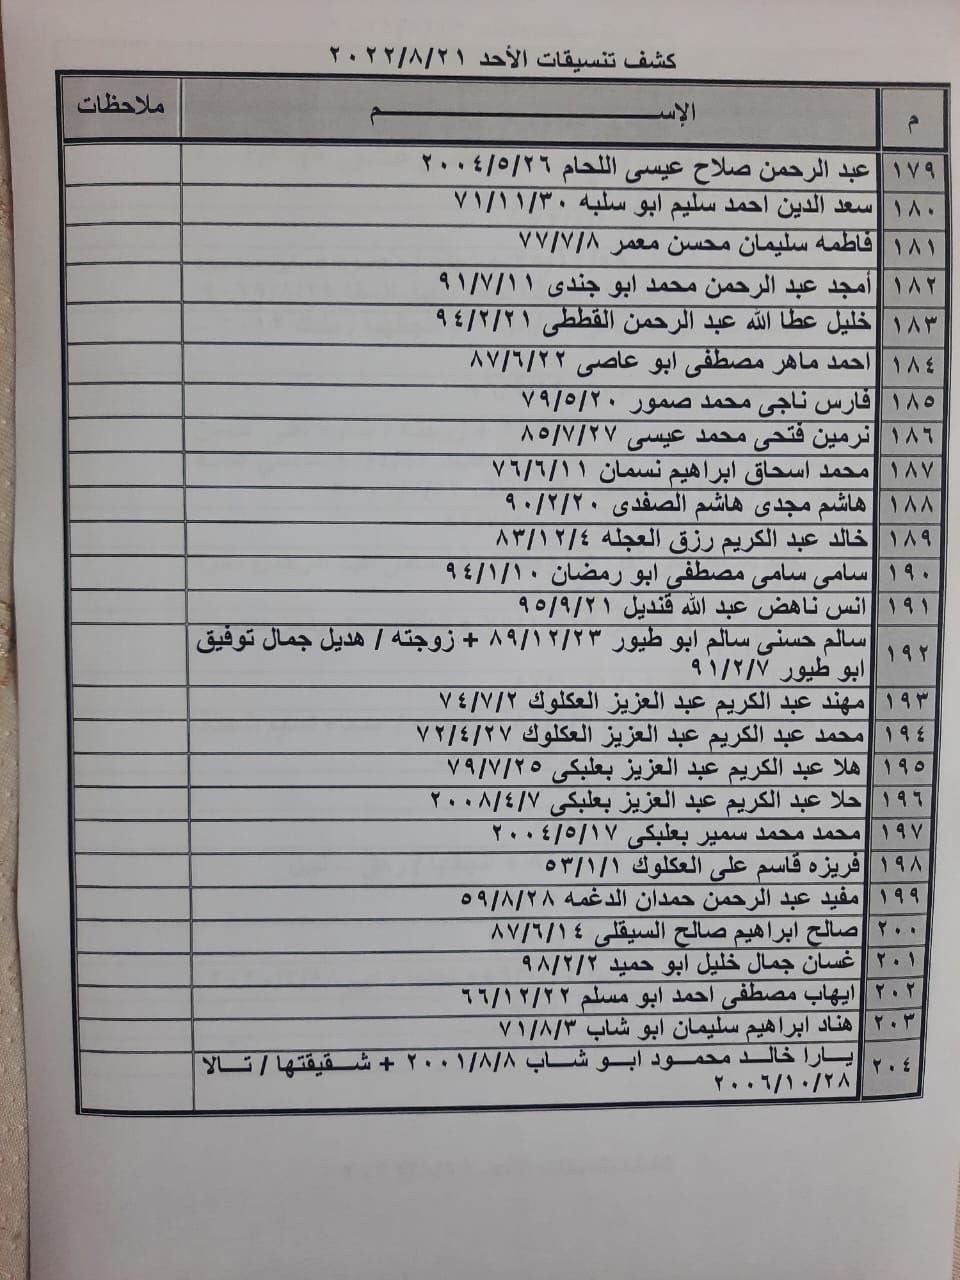 كشف تنسيقات الأحد ٢٠٢٢/٨/٢١
م الإســــــــم ملاحظات
١٧٩ عبد الرحمن صلاح عيسى اللحام ٢٠٠٤/٥/٢٦
١٨٠ سعد الدين احمد سليم ابو سلبه ٧١/١١/٣٠
١٨١ فاطمه سليمان محسن معمر ٧٧/٧/٨
١٨٢ أمجد عبد الرحمن محمد ابو جندى ٩١/٧/١١
١٨٣ خليل عطا الله عبد الرحمن القططى ٩٤/٢/٢١
١٨٤ احمد ماهر مصطفى ابو عاصى ٨٧/٦/٢٢
١٨٥ فارس ناجى محمد صمور ٧٩/٥/٢٠
١٨٦ نرمين فتحى محمد عيسى ٨٥/٧/٢٧
١٨٧ محمد اسحاق ابراهيم نسمان ٧٦/٦/١١
١٨٨ هاشم مجدى هاشم الصفدى ٩٠/٢/٢٠
١٨٩ خالد عبد الكريم رزق العجله ٨٣/١٢/٤
١٩٠ سامى سامى مصطفى ابو رمضان ٩٤/١/١٠
١٩١ انس ناهض عبد الله قنديل ٩٥/٩/٢١
١٩٢ سالم حسنى سالم ابو طيور ٨٩/١٢/٢٣ + زوجته / هديل جمال توفيق
ابو طيور ٩١/٢/٧
١٩٣ مهند عبد الكريم عبد العزيز العكلوك ٧٤/٧/٢
١٩٤ محمد عبد الكريم عبد العزيز العكلوك ٧٢/٤/٢٧
١٩٥ هلا عبد الكريم عبد العزيز بعلبكى ٧٩/٧/٢٥
١٩٦ حلا عبد الكريم عبد العزيز بعلبكى ٢٠٠٨/٤/٧
١٩٧ محمد محمد سمير بعلبكى ٢٠٠٤/٥/١٧
١٩٨ فريزه قاسم على العكلوك ٥٣/١/١
١٩٩ مفيد عبد الرحمن حمدان الدغمه ٥٩/٨/٢٨
٢٠٠ صالح ابراهيم صالح السيقلى ٨٧/٦/١٤
٢٠١ غسان جمال خليل ابو حميد ٩٨/٢/٢
٢٠٢ ايهاب مصطفى احمد ابو مسلم ٦٦/١٢/٢٢
٢٠٣ هناد ابراهيم سليمان ابو شاب ٧١/٨/٣
٢٠٤ يــارا خالــد محمــود ابــو شــاب ٢٠٠١/٨/٨ + شــقيقتها / تــالا
٢٠٠٦/١٠/٢٨